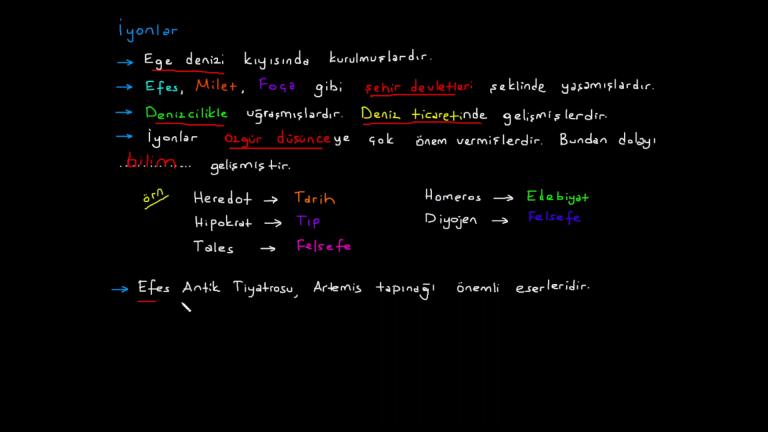 İyonlar
→ Ege denizi kıyısında kurulmuşlardır.
→ Efes, Milet, Foça gibi şehir devletleri şeklinde yaşamışlardır.
→ Denizcilikle uğraşmışlardır. Deniz ticaretinde gelişmişlerdir.
→ İyonlar özgür düşünceye çok önem vermişlerdir. Bundan dolayı
bilim gelişmiştir.
örn Heredot → Tarih Homeros → Edebiyat
Hipokrat → Tıp Diyojen → Felsefe
Tales → Felsefe
→ Efes Antik Tiyatrosu, Artemis tapınağı önemli eserleridir.